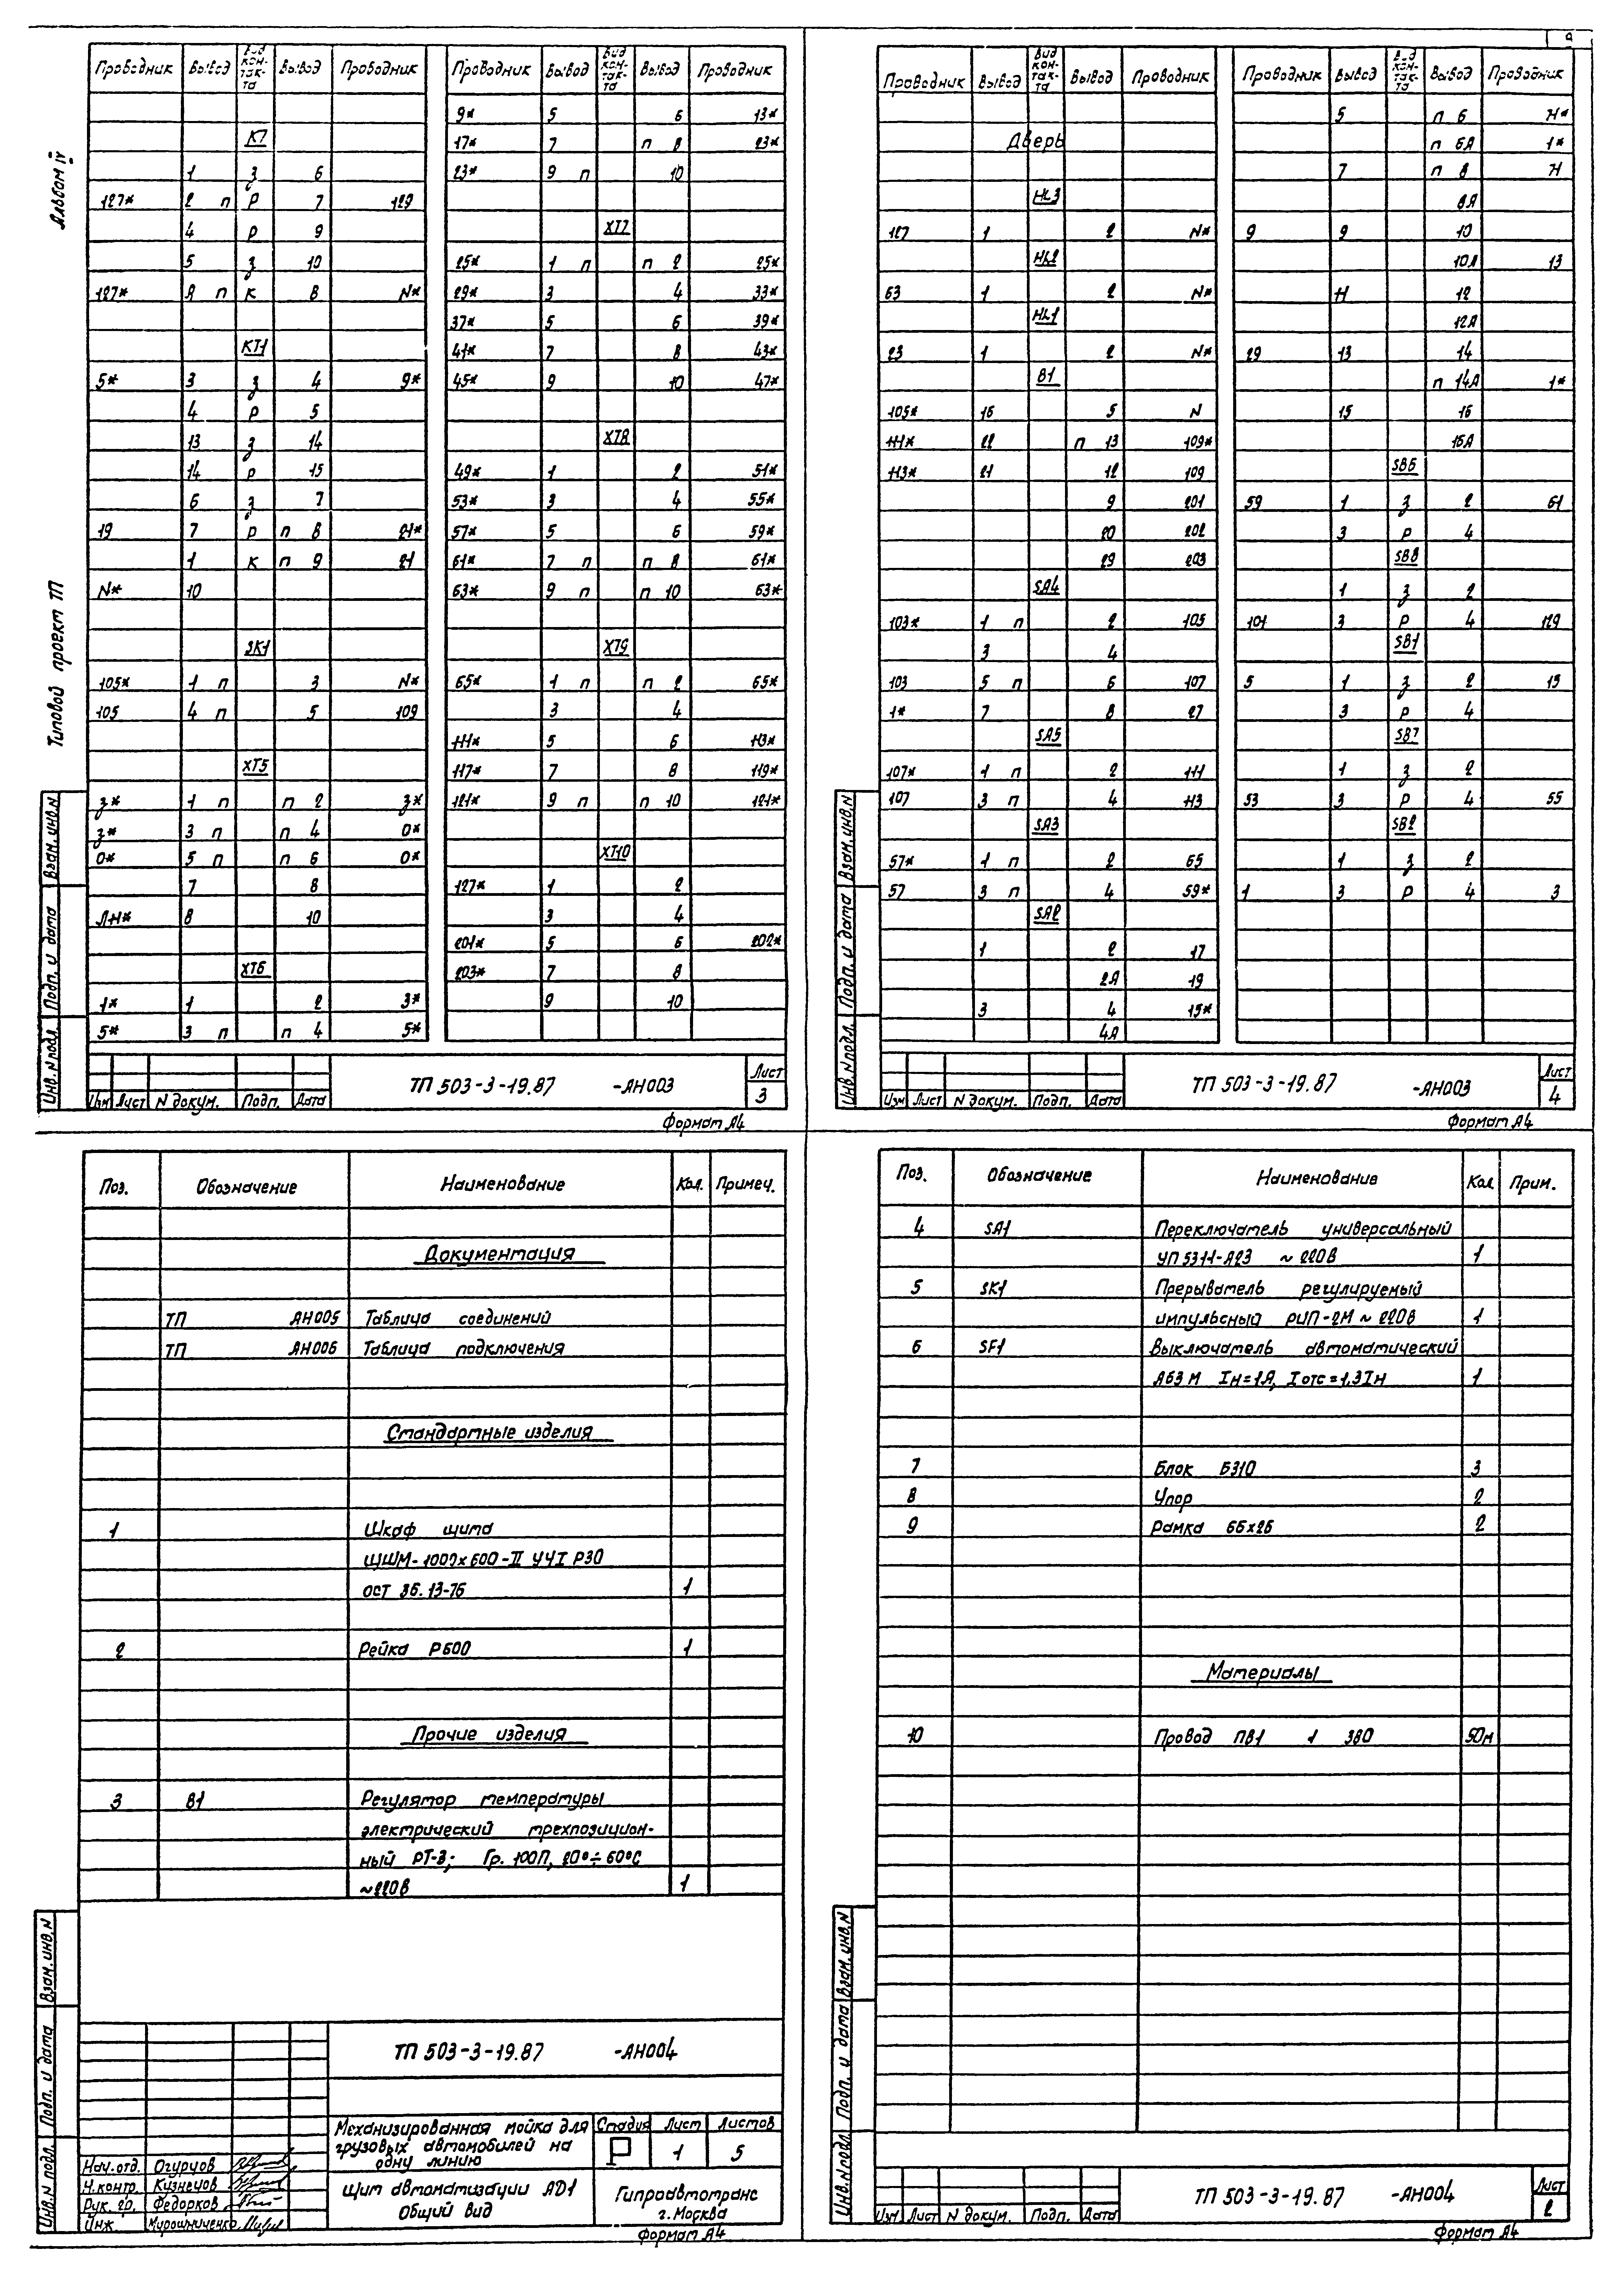 Альбом IV
Типовой проект ТП
Проводник Вывод Вид кон-так-та Вывод Проводник
К7
1 з 6
127* 2 п Р 7 129
4 Р 9
5 з 10
127* А п К В N*
КТ1
5* 3 з 4 9*
4 Р 5
13 з 14
14 Р 15
6 з 7
19 7 Р п 8 21*
1 К п 9 21
N* 10
SK1
105* 1 п 3 N*
105 4 п 5 109
ХТ5
з* 1 п п 2 з*
з* 3 п п 4 0*
0* 5 п п 6 0*
7 8
ЛН* 8 10
ХТ6
1* 1 2 3*
5* 3 п п 4 5*
Проводник Вывод Вид кон-так-та Вывод Проводник
9* 5 6 13*
17* 7 п 8 23*
23* 9 п 10
ХТ7
25* 1 п п 2 25*
29* 3 4 33*
37* 5 6 39*
41* 7 8 43*
45* 9 10 47*
ХТ8
49* 1 2 51*
53* 3 4 55*
57* 5 6 59*
61* 7 п п 8 61*
63* 9 п п 10 63*
ХТ9
65* 1 п п 2 65*
3 4
111* 5 6 113*
117* 7 8 119*
121* 9 п п 10 121*
ХТ10
127* 1 2
3 4
201* 5 6 202*
203* 7 8
9 10
Взам. инв. N
Подп. и дата
Инв. N подл.
Изм Лист N докум. Подп. Дата
ТП 503-3-19.87 -АН003
Лист
3
Формат А4
9
Проводник Вывод Вид кон-так-та Вывод Проводник
Дверь
HL3
127 1 2 N*
HL2
63 1 2 N*
HL1
23 1 2 N*
В1
105* 16 5 N
111* 22 п 13 109*
113* 21 12 109
9 201
20 202
29 203
SA4
103* 1 п 2 105
3 4
103 5 п 6 107
1* 7 8 27
SA5
107* 1 п 2 111
107 3 п 4 113
SA3
57* 1 п 2 65
57 3 п 4 59*
SA2
1 2 17
2А 19
3 4 15*
4А
Проводник Вывод Вид кон-так-та Вывод Проводник
5 п 6 Н*
п 6А 1*
7 п 8 Н
8А
9 9 10
10А 13
Н 12
12А
29 13 14
п 14А 1*
15 16
16А
SB6
59 1 з 2 61
3 Р 4
SB8
1 з 2
101 3 Р 4 129
SB1
5 1 з 2 15
3 Р 4
SB7
1 з 2
53 3 Р 4 55
SB2
1 з 2
1 3 Р 4 3
Взам. инв. N
Подп. и дата
Инв. N подл.
Изм Лист N докум. Подп. Дата
ТП 503-3-19.87 -АН003
Лист
4
Формат А4
Поз. Обозначение Наименование Кол. Примеч.
Документация
ТП АН005 Таблица соединений
ТП АН006 Таблица подключения
Стандартные изделия
1 Шкаф щита
ЩШМ-1000х600-II УЧI Р30
ОСТ 36.13-76 1
2 Рейка Р600 1
Прочие изделия
3 В1 Регулятор температуры
электрический трехпозицион-
ный РТ-3; Гр. 100П, 20°÷60°С
~220В 1
Взам. инв. N
Подп. и дата
Инв. N подл.
ТП 503-3-19.87 -АН004
Механизированная мойка для
грузовых автомобилей на
одну линию
Стадия Лист Листов
Р 1 5
Нач. отд. Огурцов
Н. контр. Кузнецов
Рук. гр. Федорков
Инж. Мирошниченко
Щит автоматизации АD1
Общий вид
Гипроавтотранс
г. Москва
Формат А4
Поз. Обозначение Наименование Кол Прим.
4 SA1 Переключатель универсальный
УП 5311-А23 ~ 220В 1
5 SK1 Прерыватель регулируемый
импульсный РИП-2М ~ 220В 1
6 SF1 Выключатель автоматический
А63 М Iн=1А, Iотс=1,3Iн 1
7 Блок Б310 3
8 Упор 2
9 Рамка 66х26 2
Материалы
10 Провод ПВ1 1 380 50м
Взам. инв. N
Подп. и дата
Инв. N подл.
Изм Лист N докум. Подп. Дата
ТП 503-3-19.87 -АН004
Лист
2
Формат А4